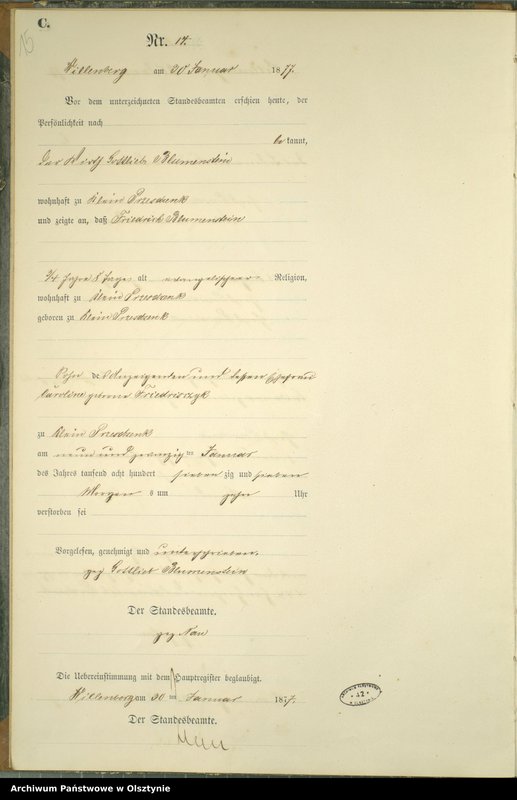 C.
15
Nr. 14.
Willenberg am 30 Januar 1877.
Vor dem unterzeichneten Standesbeamten erschien heute, der
Persönlichkeit nach
be kannt,
der Gottlieb Blumenstein
wohnhaft zu Klein Przesdzenk
und zeigte an, daß Friedrich Blumenstein
3/4 Jahre 8 Tage alt evangelischer Religion,
wohnhaft zu Klein Przesdzenk
geboren zu Klein Przesdzenk
Sohn des Anzeigenden und dessen Ehefrau
Caroline geborne
zu Klein Przesdzenk
am neun und zwanzig ten Januar
des Jahres tausend acht hundert sieben zig und sieben
Morgen s um zehn Uhr
verstorben sei
Vorgelesen, genehmigt und unterschrieben.
gez Gottlieb Blumenstein
Der Standesbeamte.
gez
Die Uebereinstimmung mit dem Hauptregister beglaubigt.
Willenberg am 30 ten Januar 1877.
Der Standesbeamte.
42
Archiwum Państwowe w Olsztynie